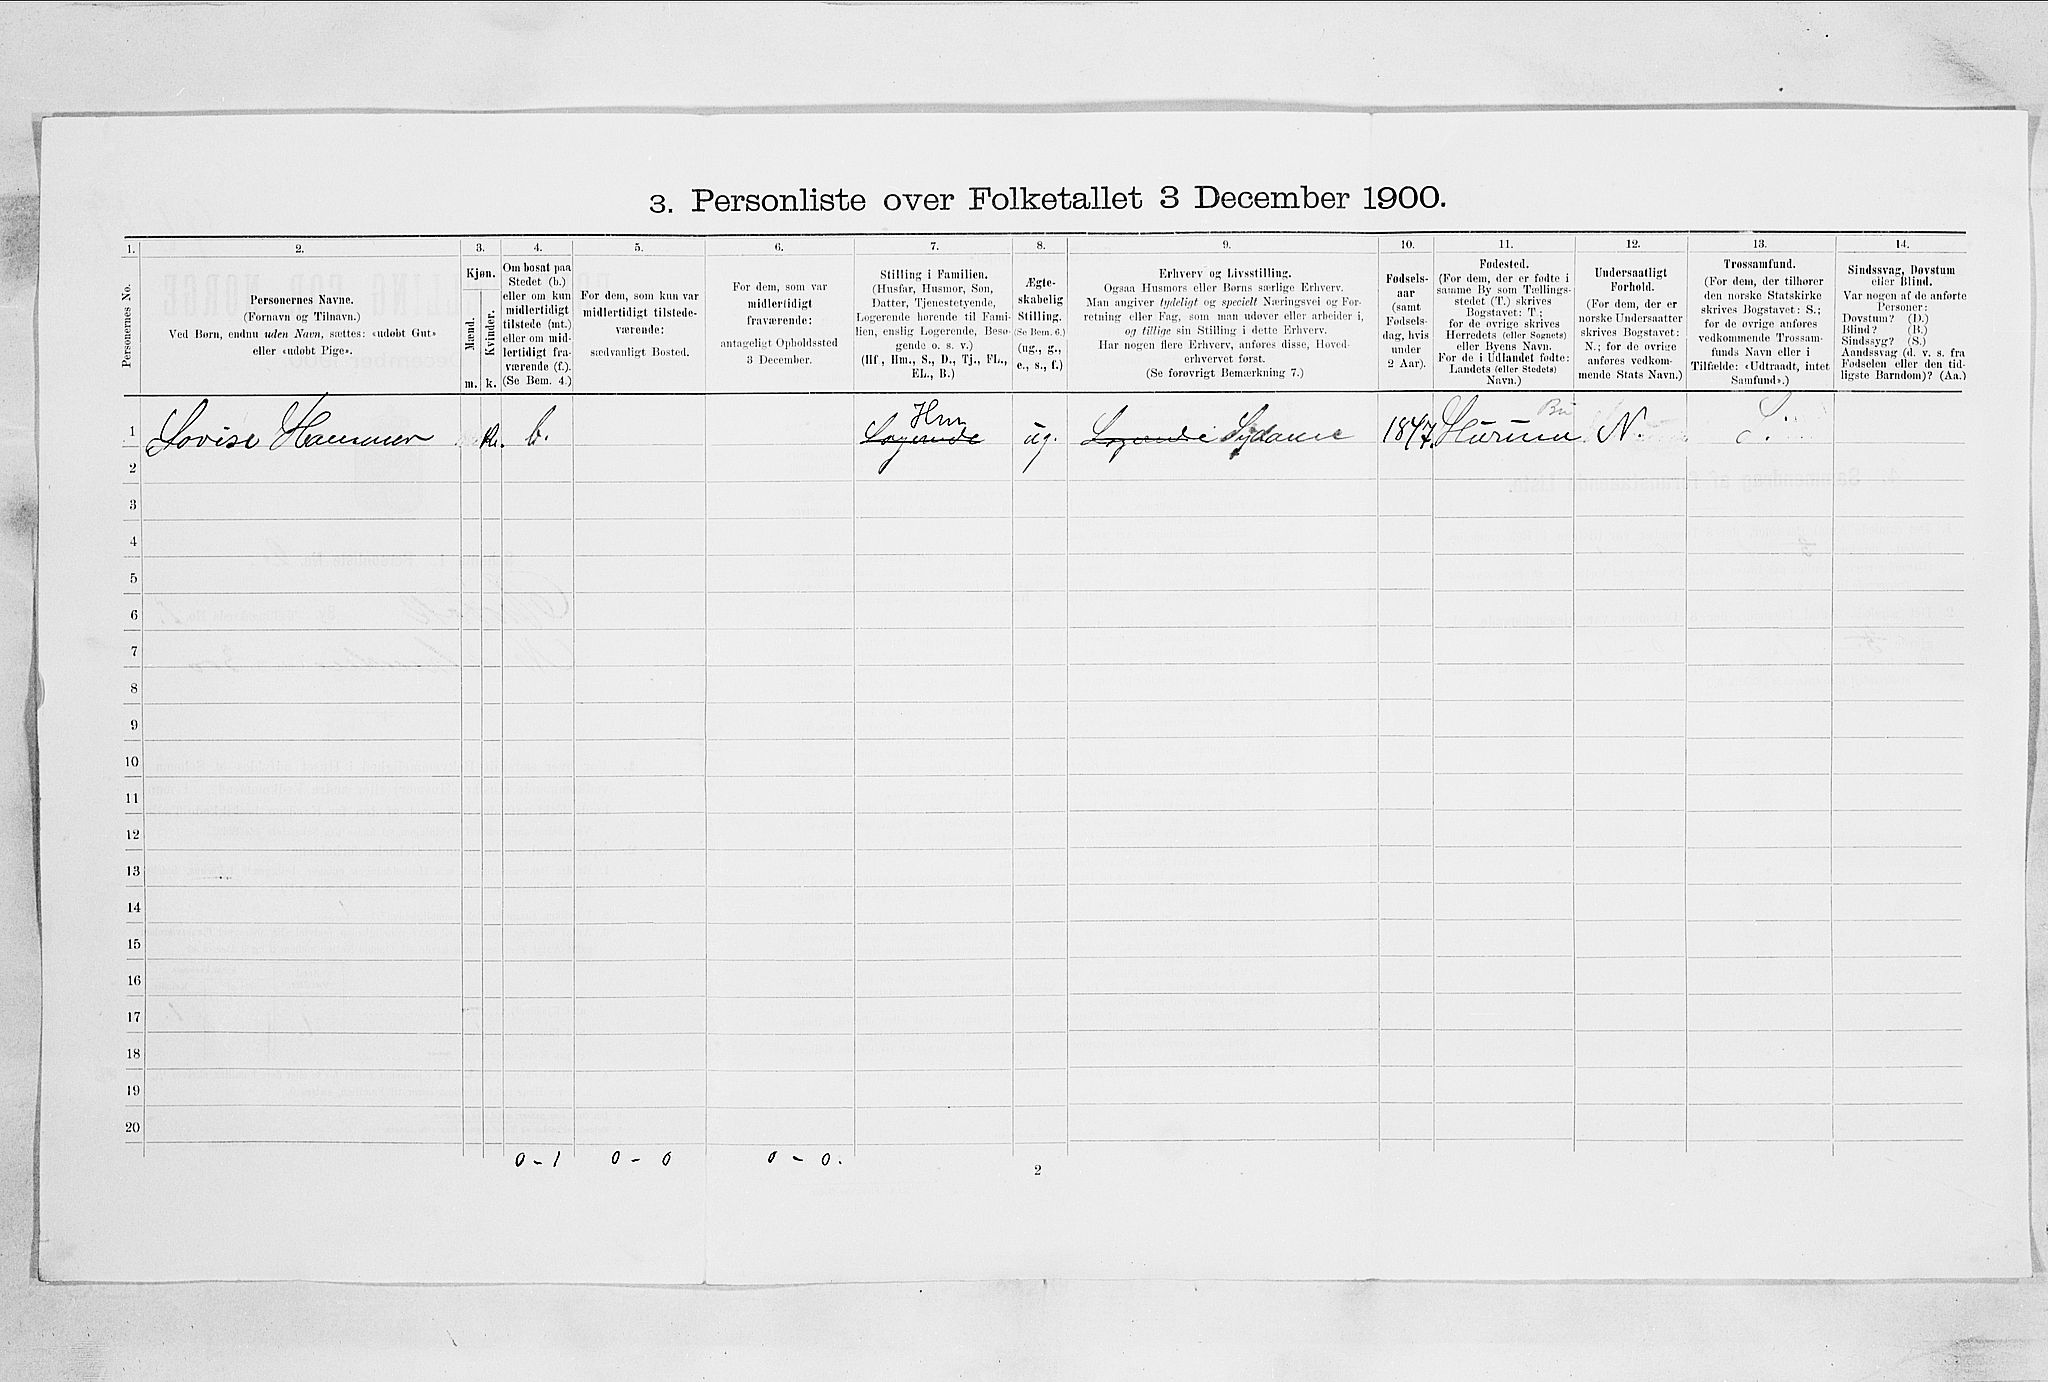 3. Personliste over Folketallet 3 December 1900.
1. 2. 3. 4. 5. 6. 7. 8. 9. 10. 11. 12. 13. 14.
Personernes No.
Personernes Navne.
(Fornavn og Tilnavn.)
Ved Børn, endnu uden Navn, sættes: «udøbt Gut»
eller «udøbt Pige».
Kjøn.
Mænd.
Kvinder.
m. k.
Om bosat paa
Stedet (b.)
eller om kun
midlertidigt
tilstede (mt.)
eller om mid-
lertidigt fra-
værende (f.).
(Se Bem. 4.)
For dem, som kun var
midlertidigt tilstede-
værende:
sædvanligt Bosted.
For dem, som var
midlertidigt
fraværende:
antageligt Opholdssted
3 December.
Stilling i Familien.
(Husfar, Husmor, Søn,
Datter, Tjenestetyende,
Logerende hørende til Fami-
lien, enslig Logerende, Besø-
gende o. s. v.)
(Hf., Hm., S., D., Tj., FL.,
EL., B.)
Ægte-
skabelig
Stilling.
(Se Bem. 6.)
(ug., g.,
e., s., f.)
Erhverv og Livsstilling.
Ogsaa Husmors eller Børns særlige Erhverv.
Man angiver tydeligt og specielt Næringsvei og For-
retning eller Fag, som man udøver eller arbeider i,
og tillige sin Stilling i dette Erhverv.
Har nogen flere Erhverv, anføres disse, Hoved-
erhvervet først.
(Se forøvrigt Bemærkning 7.)
Fødsels-
aar
(samt
Fødsels-
dag, hvis
under
2 Aar).
Fødested.
(For dem, der er fødte i
samme By som Tællings-
stedet (T.) skrives
Bogstavet: T.;
for de øvrige skrives
Herredets (eller Sognets)
eller Byens Navn.
For de i Udlandet fødte:
Landets (eller Stedets)
Navn.)
Undersaatligt
Forhold.
(For dem, der er
norske Undersaatter
skrives Bogstavet:
N.; for de øvrige
anføres vedkom-
mende Stats Navn.)
Trossamfund.
(For dem, der tilhører
den norske Statskirke
skrives Bogstavet: S.;
for de øvrige anføres
vedkommende Trossam-
funds Navn eller i
Tilfælde: «Udtraadt, intet
Samfund».)
Sindssvag, Døvstum
eller Blind.
Var nogen af de anførte
Personer:
Døvstum? (D.)
Blind? (B.)
Sindssyg? (S.)
Aandssvag (d. v. s. fra
Fødselen eller den tid-
ligste Barndom)? (Aa.)
Hm Bu
1 Lovise Hammer k. b. Logerende ug. Logerende Sydame 1847. Hurum N. S.
2
3
4
5
6
7
8
9
10
11
12
13
14
15
16
17
18
19
20
0 - 1 0 - 0 0 - 0.
2